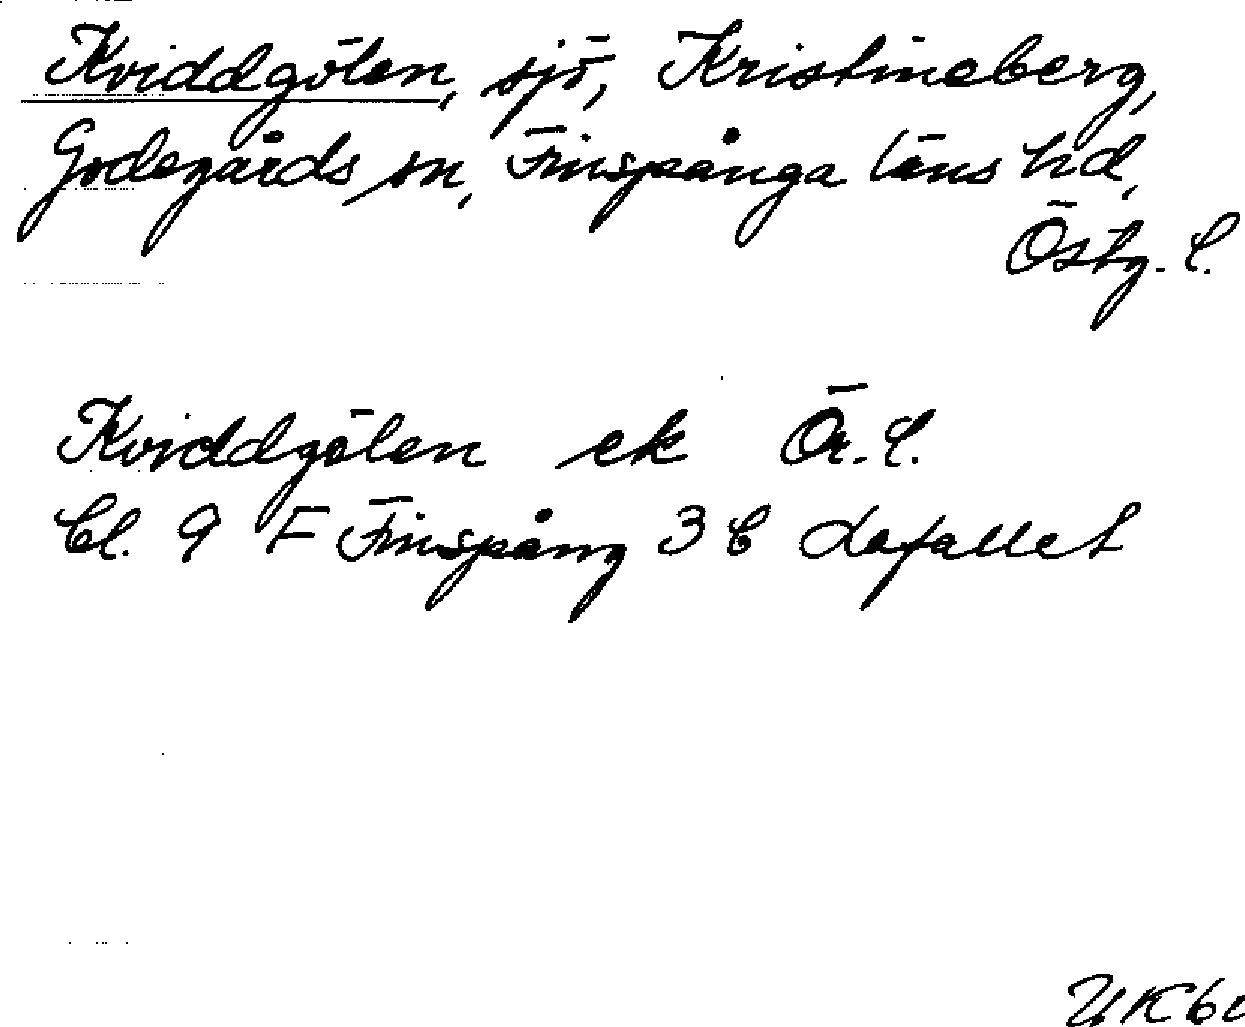 Kviddgölen, sjö, Kristineberg,
Godegårds sn, Finspånga läns hd,
Östg. l.
Kviddgölen ek Ör. l.
Bl. 9 F Finspång 3 C